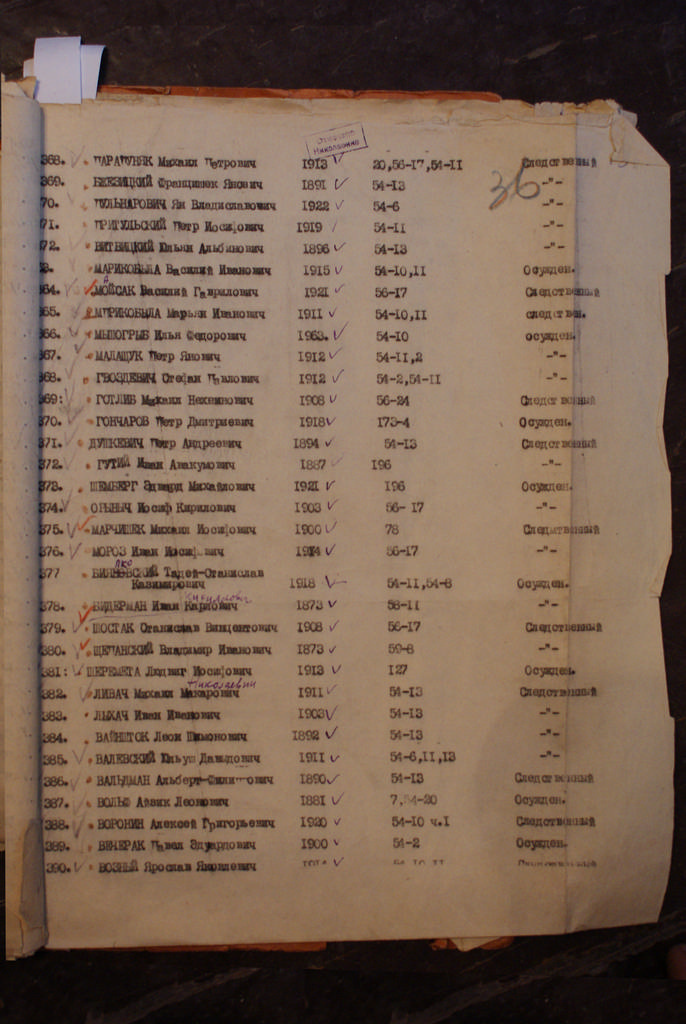 Николаевна
36
368. ПАРАПУНЯК Михаил Петрович 1913 20,56-17,54-11 Следственный
369. БЖЕЗИЦКИЙ Францишек Янович 1891 54-13 -"-
70. ПУЛЬНАРОВИЧ Ян Владиславович 1922 54-6 -"-
71. ПРИГУЛЬСКИЙ Петр Иосифович 1919 54-11 -"-
72. ВИТВИЦКИЙ Юльян Альбинович 1896 54-13 -"-
3. МАРИКОБЫЛА Василий Иванович 1915 54-10,11 Осужден.
364. МОЙСАК Василий Гаврилович 1921 56-17 Следственный
365. МУРИКОБЫЛА Марьян Иванович 1911 54-10,11 следствен.
366. МЫШОГРЫБ Илья Федорович 1963. 54-10 осужден.
367. МАЛАЩУК Петр Янович 1912 54-11,2 -"-
368. ГВОЗДЕВИЧ Стефан Павлович 1912 54-2,54-11 -"-
369: ГОТЛИБ Михаил Нехемнович 1908 56-24 Следственный
370. ГОНЧАРОВ Петр Дмитриевич 1918 173-4 Осужден.
371. ДУШКЕВИЧ Петр Андреевич 1894 54-13 Следственный
372. ГУТИЙ Иван Авакумович 1887 196 -"-
373. ШЕМБЕРГ Эдвард Михайлович 1921 196 Осужден.
374. ОРЫНЫЧ Иосиф Кирилович 1903 56- 17 -"-
375. МАРЧИШЕК Михаил Иосифович 1900 78 Следственный
376. МОРОЗ Иван Иосифович 1914 56-17 -"-
377 Тадей-Станислав
Казимирович 1918 54-11,54-8 Осужден.
378. ВИДЕРМАН Иван Карлович 1873 58-11 -"-
379. ШОСТАК Станислав Винцентович 1908 56-17 Следственный
380. ЩЕПАНСКИЙ Владимир Иванович 1873 59-8 -"-
381: ШЕРЕМЕТА Людвиг Иосифович 1913 127 Осужден.
Николаевич
382. ЛИВАЧ Михаил Макарович 1911 54-13 Следственный
383. ЛЫХАЧ Иван Иванович 1903 54-13 -"-
384. ВАЙНШТОК Леон Шимонович 1892 54-13 -"-
385. ВАЛЕВСКИЙ Юльуш Давыдович 1911 54-6,11,13 -"-
386. ВАЛЬДМАН 1890 54-13 Следственный
387. ВОЛЬФ Айзик Леонович 1881 7,54-20 Осужден.
388. ВОРОНИН Алексей Григорьевич 1920 54-10 ч.1 Следственный
389. ВЕЧЕРАК Павел Эдуардович 1900 54-2 Осужден.
390. ВОЗНЫЙ Ярослав Яковлевич